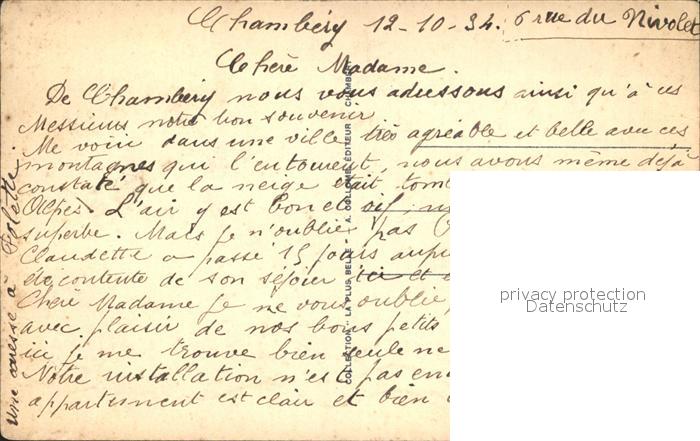 Chambéry 12-10-34. 6 rue du Nivolet
Chère Madame.
De Chambéry nous vous adressons ainsi qu'à ces
Messieurs notre bon souvenir
Me voici dans une ville très agréable et belle avec ces
montagnes qui l'entourent, nous avons même déjà
constaté que la neige était tom
Alpes. L'air y est bon et
superbe. Mais je n'oublie pas
Claudette a passé 15 jours aup
été contente de son séjour ici et
Chère Madame je ne vous oublie
avec plaisir de nos bons petits
ici je me trouve bien seule ne
Notre installation n'est pas en
appartement est clair et bien
une caresse à
COLLECTION "LA PLUS BELLE" - A. COLLOMB, ÉDITEUR, CHAMBÉRY
privacy protection
Datenschutz